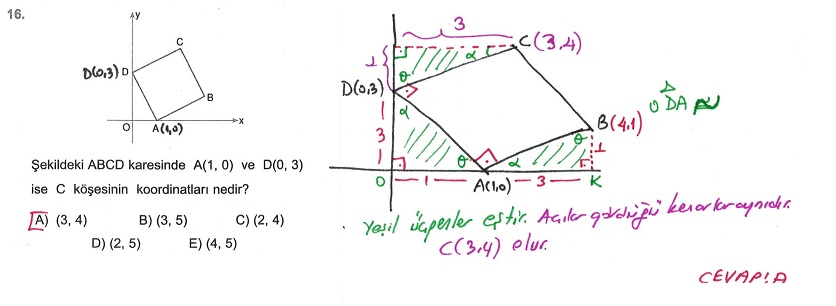 16.
y
C
D(0,3) D
B
O
A(1,0)
x
Şekildeki ABCD karesinde A(1, 0) ve D(0, 3)
ise C köşesinin koordinatları nedir?
A) (3, 4) B) (3, 5) C) (2, 4)
D) (2, 5) E) (4, 5)
3
C(3,4)
1
α
θ
D(0,3)
α
ODA ~
3
B(4,1)
θ
1
θ
α
O 1 A(1,0) 3 K
Yeşil üçgenler eştir. Açılar gördüğü kenarlar aynıdır.
C(3,4) olur.
CEVAP:A